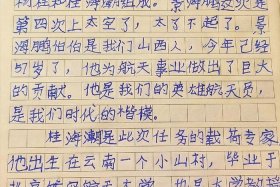 杨桂和桂海潮组成。景海鹏这次是
第四次上太空了，太了不起了。景
海鹏伯伯是我们山西人，今年已经
57岁了，他为航天事业做出了巨大
的贡献。他是我们的英雄航天员，
是我们时代的楷模。
桂海潮是此次任务的载荷专家
他出生在云南一个小山村，毕业于